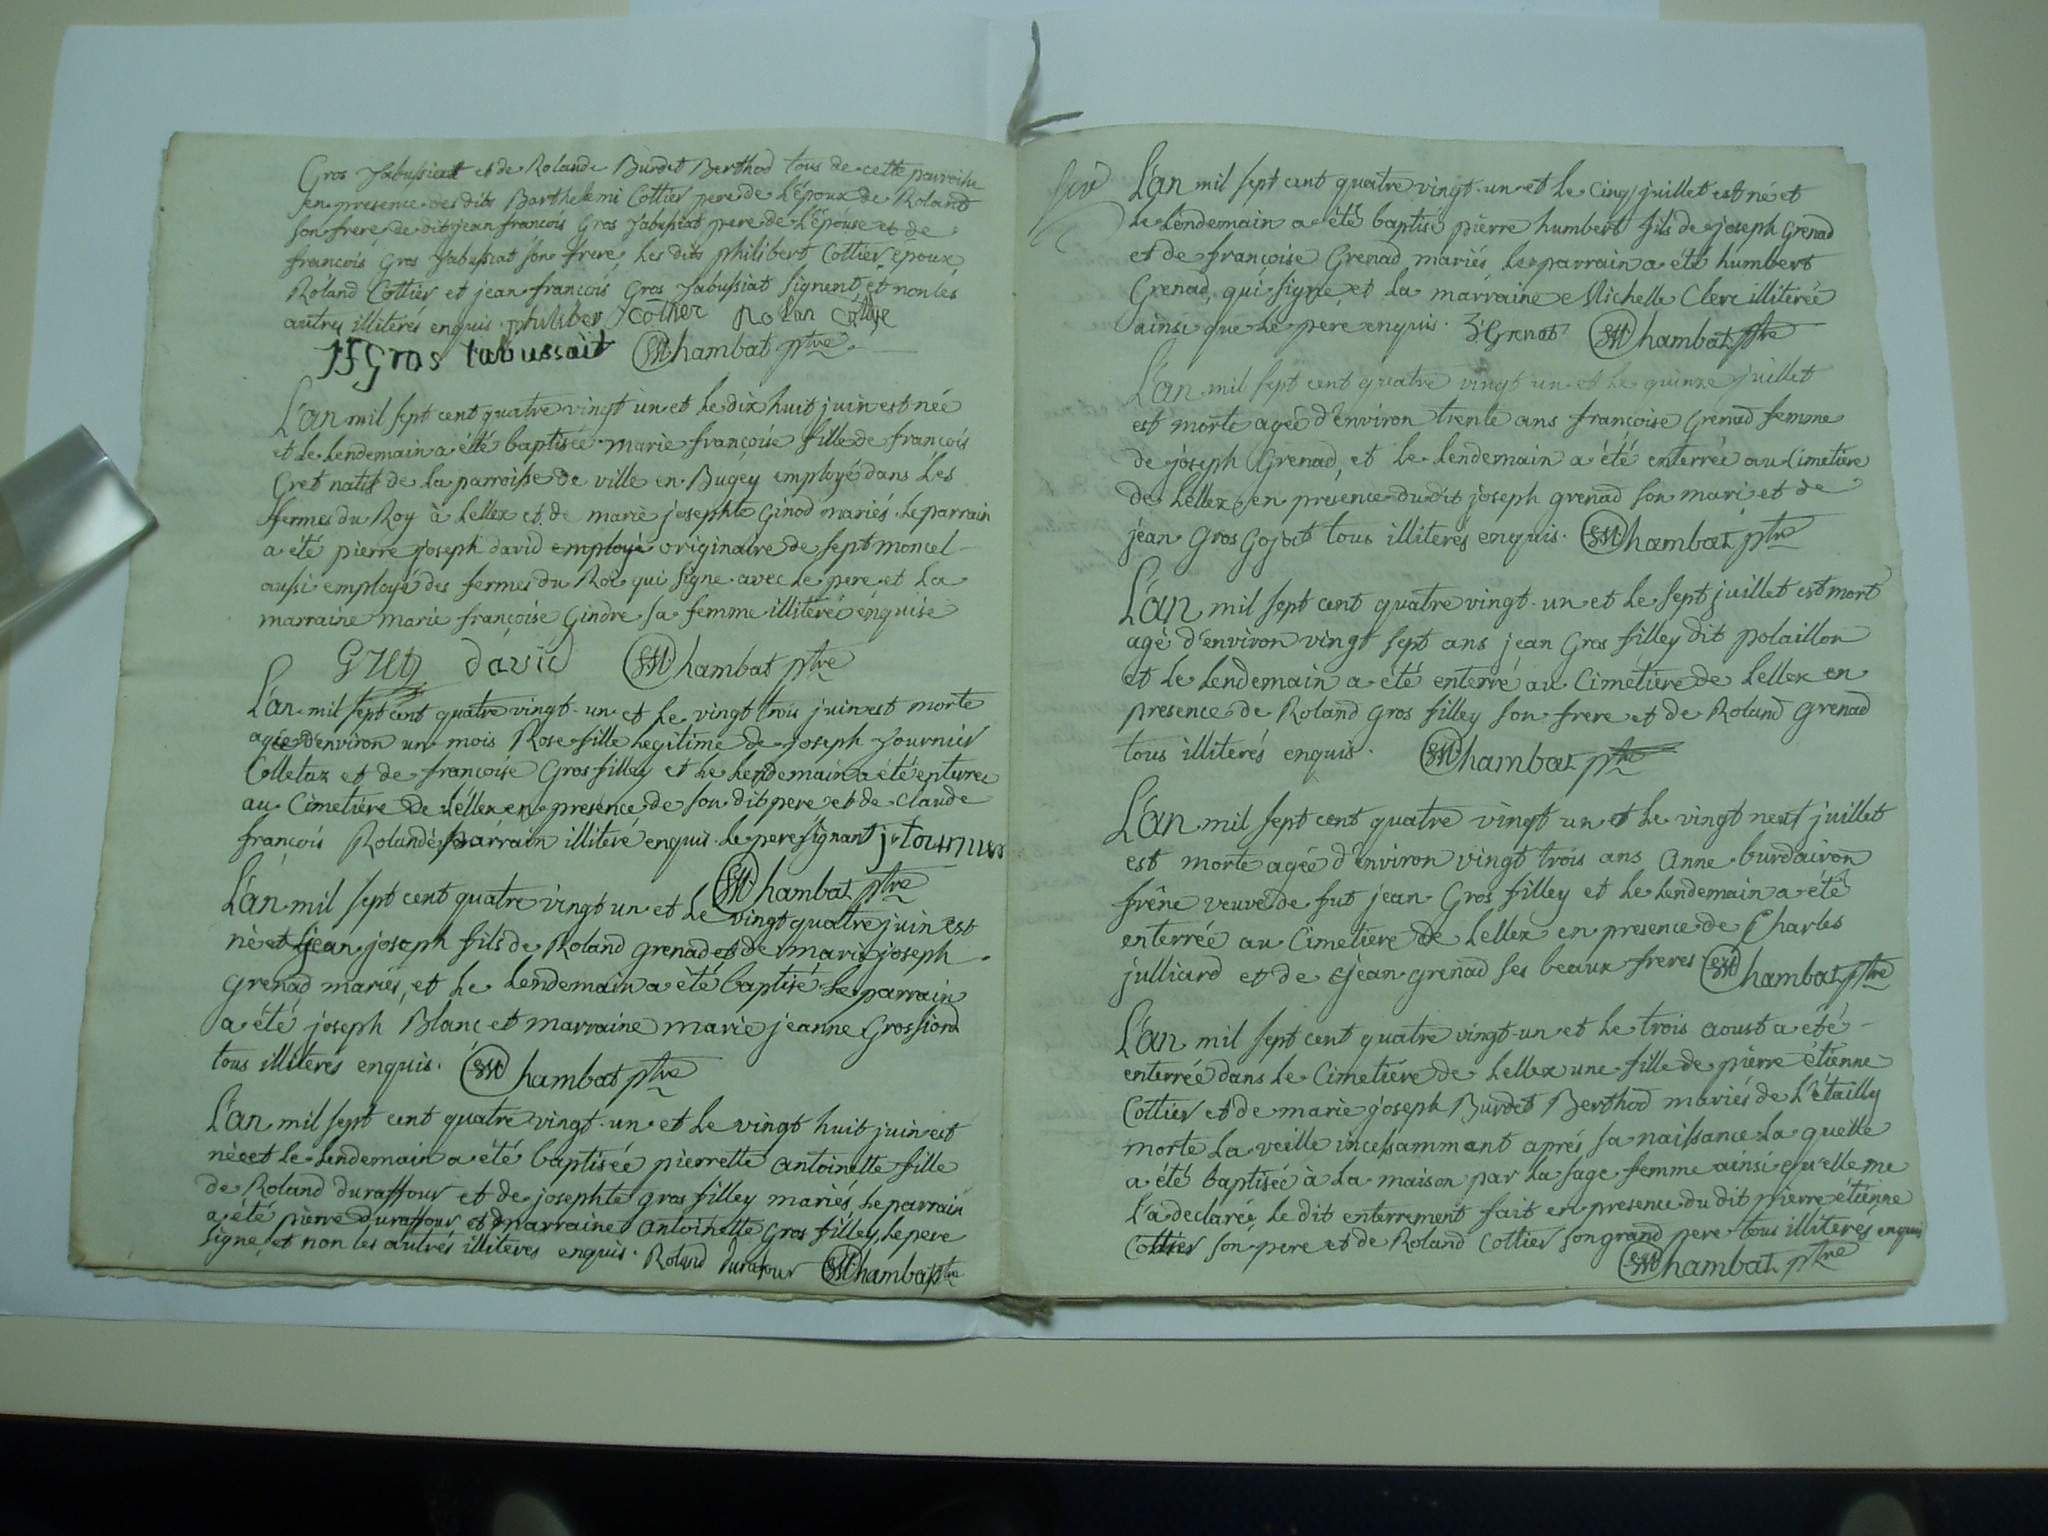 Gros Jabussiat et de Rolande Burdet Berthod tous de cette parroisse
en presence des dits Barthelemi Cottier pere de l'époux de Roland
son frere de dit jean francois Gros Jabussiat pere de l'épouse et de
francois Gros Jabussiat son frere, les dits philibert Cottier époux,
Roland Cottier et jean francois Gros Jabussiat signent et non les
autres illiterés enquis. philiber Cother Rolan Cotie
JF Gros Iabussait Chambat ptre
L'an mil sept cent quatre vingt un et le dix huit juin est née
et le lendemain a été baptisée marie françoise fille de francois
Cret natif de la parroisse de ville en Bugey employé dans les
fermes du Roy à Lellex et de marie josephte Ginod mariés. le parrain
a été pierre joseph david employé originaire de sept moncel
aussi employé des fermes du Roi qui signe avec le pere et la
marraine marie françoise Gindre sa femme illiteré enquise
david Chambat ptre
L'an mil sept cent quatre vingt un et le vingt trois juin est morte
agée d'environ un mois Rose fille legitime de joseph fournier
Colletaz et de françoise Gros filley et le lendemain a été enterrée
au Cimetiere de Lellex en presence de son dit pere et de claude
françois Rolandé parrain illiteré enquis le pere signant j. fournier
Chambat ptre
L'an mil sept cent quatre vingt un et le vingt quatre juin est
né jean joseph fils de Roland grenad et de marie joseph
grenad mariés, et le lendemain a été baptisé le parrain
a été joseph Blanc et marraine marie jeanne Grossiord
tous illiterés enquis. Chambat ptre
L'an mil sept cent quatre vingt un et le vingt huit juin est
née et le lendemain a été baptisée pierrette antoinette fille
de Roland duraffour et de josephte gros filley mariés, le parrain
a été pierre duraffour et marraine antoinette Gros filley, le pere
signe, et non les autres illiteres enquis. Roland durafour Chambat ptre
L'an mil sept cent quatre vingt un et le cinq juillet est né et
le lendemain a été baptisé pierre humbert fils de joseph Grenad
et de françoise Grenad mariés, le parrain a été humbert
Grenad, qui signe et la marraine Michelle Clerc illiterée
ainsi que le pere enquis. Grenat Chambat ptre
L'an mil sept cent quatre vingt un et le quinze juillet
est morte agée d'environ trente ans françoise Grenad femme
de joseph Grenad, et le lendemain a été enterrée au Cimetiere
de Lellex en presence du dit joseph grenad son mari et de
jean Gros Gojoit tous illiterés enquis. Chambat ptre
L'an mil sept cent quatre vingt un et le sept juillet est mort
agé d'environ vingt sept ans jean Gros filley dit polaillon
et le lendemain a été enterré au Cimetiere de Lellex en
presence de Roland Gros filley son frere et de Roland grenad
tous illiterés enquis. Chambat ptre
L'an mil sept cent quatre vingt un et le vingt neuf juillet
est morte agée d'environ vingt trois ans anne burdairon
frêne veuve de fut jean Gros filley et le lendemain a été
enterrée au Cimetiere de Lellex en presence de Charles
julliard et de jean grenad ses beaux freres Chambat ptre
L'an mil sept cent quatre vingt un et le trois aoust a été
enterrée dans le Cimetiere de Lellex une fille de pierre étienne
Cottier et de marie joseph Burdet Berthod mariés de L'étailly
morte la veille incessamment aprés sa naissance la quelle
a été baptisée à la maison par la sage femme ainsi qu'elle me
l'a declaré le dit enterrement fait en presence du dit pierre étienne
Cottier son pere et de Roland Cottier son grand pere tous illiteres enquis
Chambat ptre